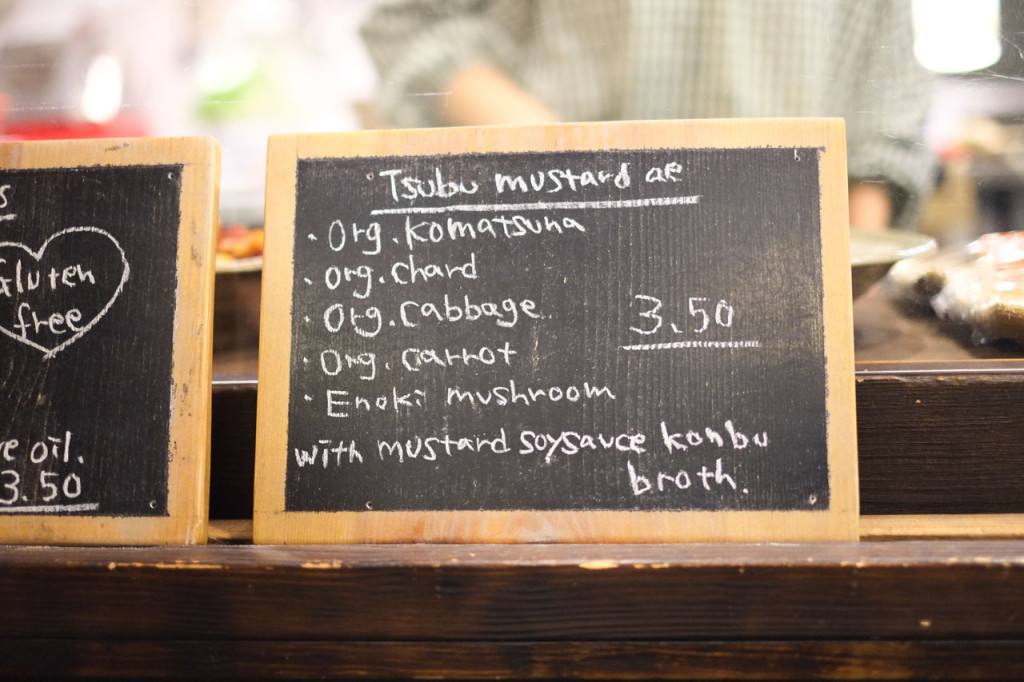 Gluten
free
oil.
3.50
Tsubu mustard ae
· Org. Komatsuna
· Org. chard
· Org. Cabbage
3.50
· Org. carrot
· Enoki mushroom
with mustard soysauce konbu
broth.